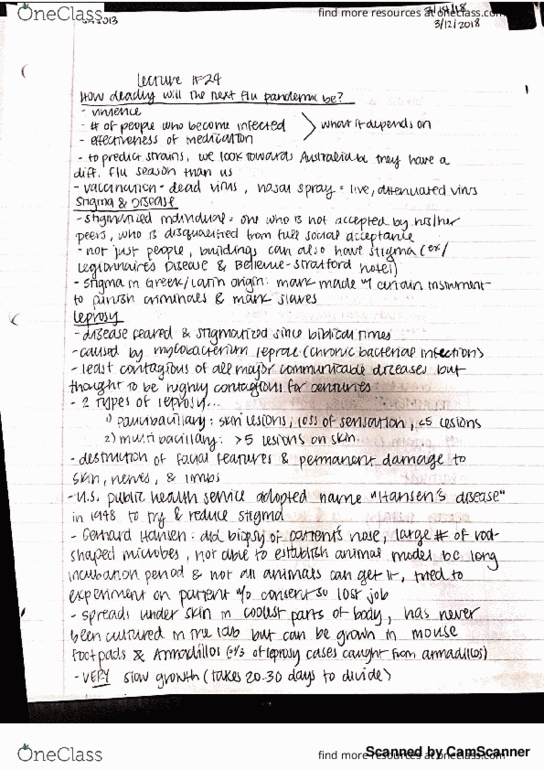 OneClass
find more resources at oneclass.com
3/12/2018
Lecture #24
How deadly will the next flu pandemic be?
- virulence
- # of people who become infected > what it depends on
- effectiveness of medication
- to predict strains, we look towards Australia bc they have a
diff. flu season than us
- vaccination - dead virus, nasal spray = live, attenuated virus
Stigma & Disease
- stigmatized individual = one who is not accepted by his/her
peers, who is disqualified from full social acceptance
- not just people, buildings can also have stigma (ex/
Legionnaire's Disease & Bellevue-Stratford hotel)
- stigma in Greek/Latin origin: mark made w/ certain instrument
to punish criminals & mark slaves
Leprosy
- disease feared & stigmatized since biblical times
- caused by mycobacterium leprae (chronic bacterial infections)
- least contagious of all major communicable diseases but
thought to be highly contagious for centuries
- 2 types of leprosy...
1) paucibacillary: skin lesions, loss of sensation, <5 lesions
2) multibacillary: >5 lesions on skin
- destruction of facial features & permanent damage to
skin, nerves, & limbs
- U.S. public health service adopted name "Hansen's disease"
in 1948 to try & reduce stigma
- Gerhard Hansen: did biopsy of patient's nose, large # of rod-
shaped microbes, not able to establish animal model bc long
incubation period & not all animals can get it, tried to
experiment on patient w/o consent so lost job
- spreads under skin in coolest parts of body, has never
been cultured in the lab but can be grown in mouse
footpads & Armadillos ( of leprosy cases caught from armadillos)
- VERY slow growth (takes 20-30 days to divide)
OneClass
find more resources at oneclass.com
Scanned by CamScanner